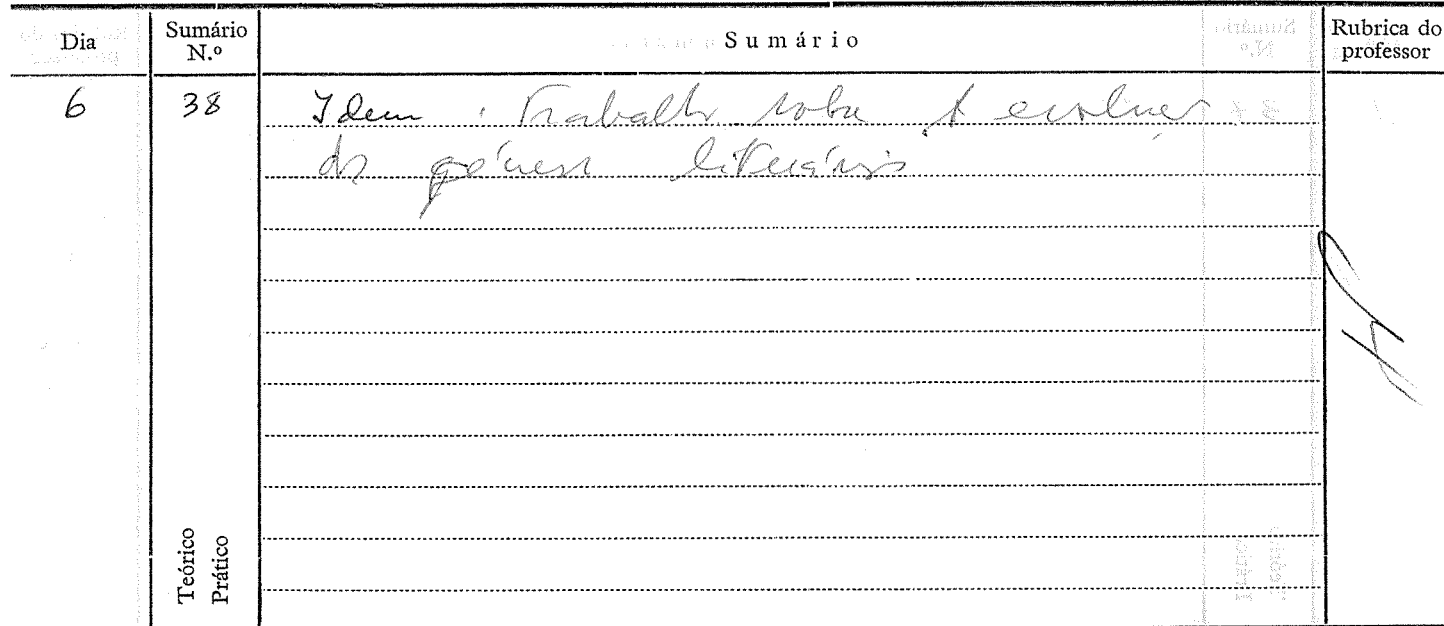 Dia
Sumário N.º
Sumário
Rubrica do professor
6
38
Idem : Trabalho sobre A evolução
dos géneros literários
Teórico
Prático